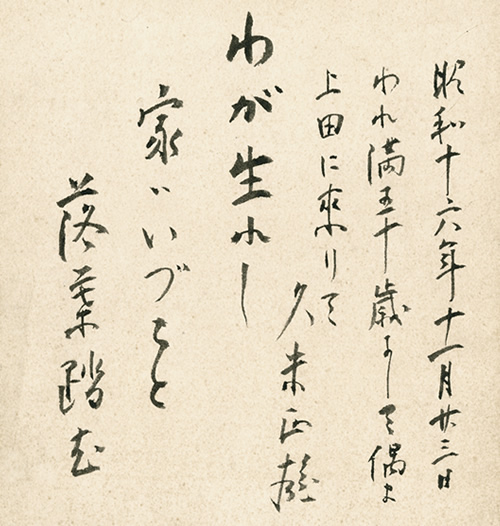 昭和十六年十一月廿三日
われ満五十歳にして偶ま
上田に来りて
久米正雄
わが生れし
家ハいづこと
落葉踏む